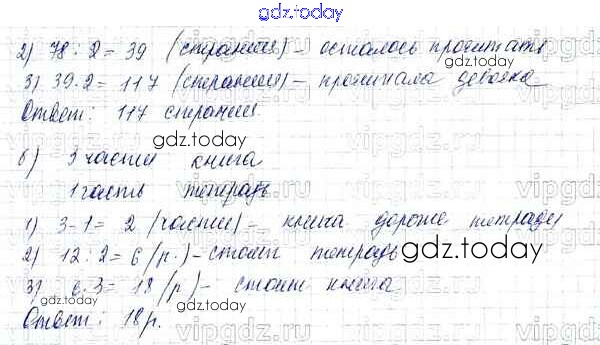 gdz.today
2) 78 : 2 = 39 (страниц) – осталось прочитать
3) 39 · 2 = 117 (страниц) – прочитала девочка
gdz.today
Ответ: 117 страниц.
gdz.today
б) 3 части книга
1 часть тетрадь
gdz.today
1) 3 - 1 = 2 (части) – книга дороже тетради
2) 12 : 2 = 6 (р.) – стоит тетрадь
gdz.today
3) 6 · 3 = 18 (р) – стоит книга
Ответ: 18 р.
gdz.today
vipgdz.ru